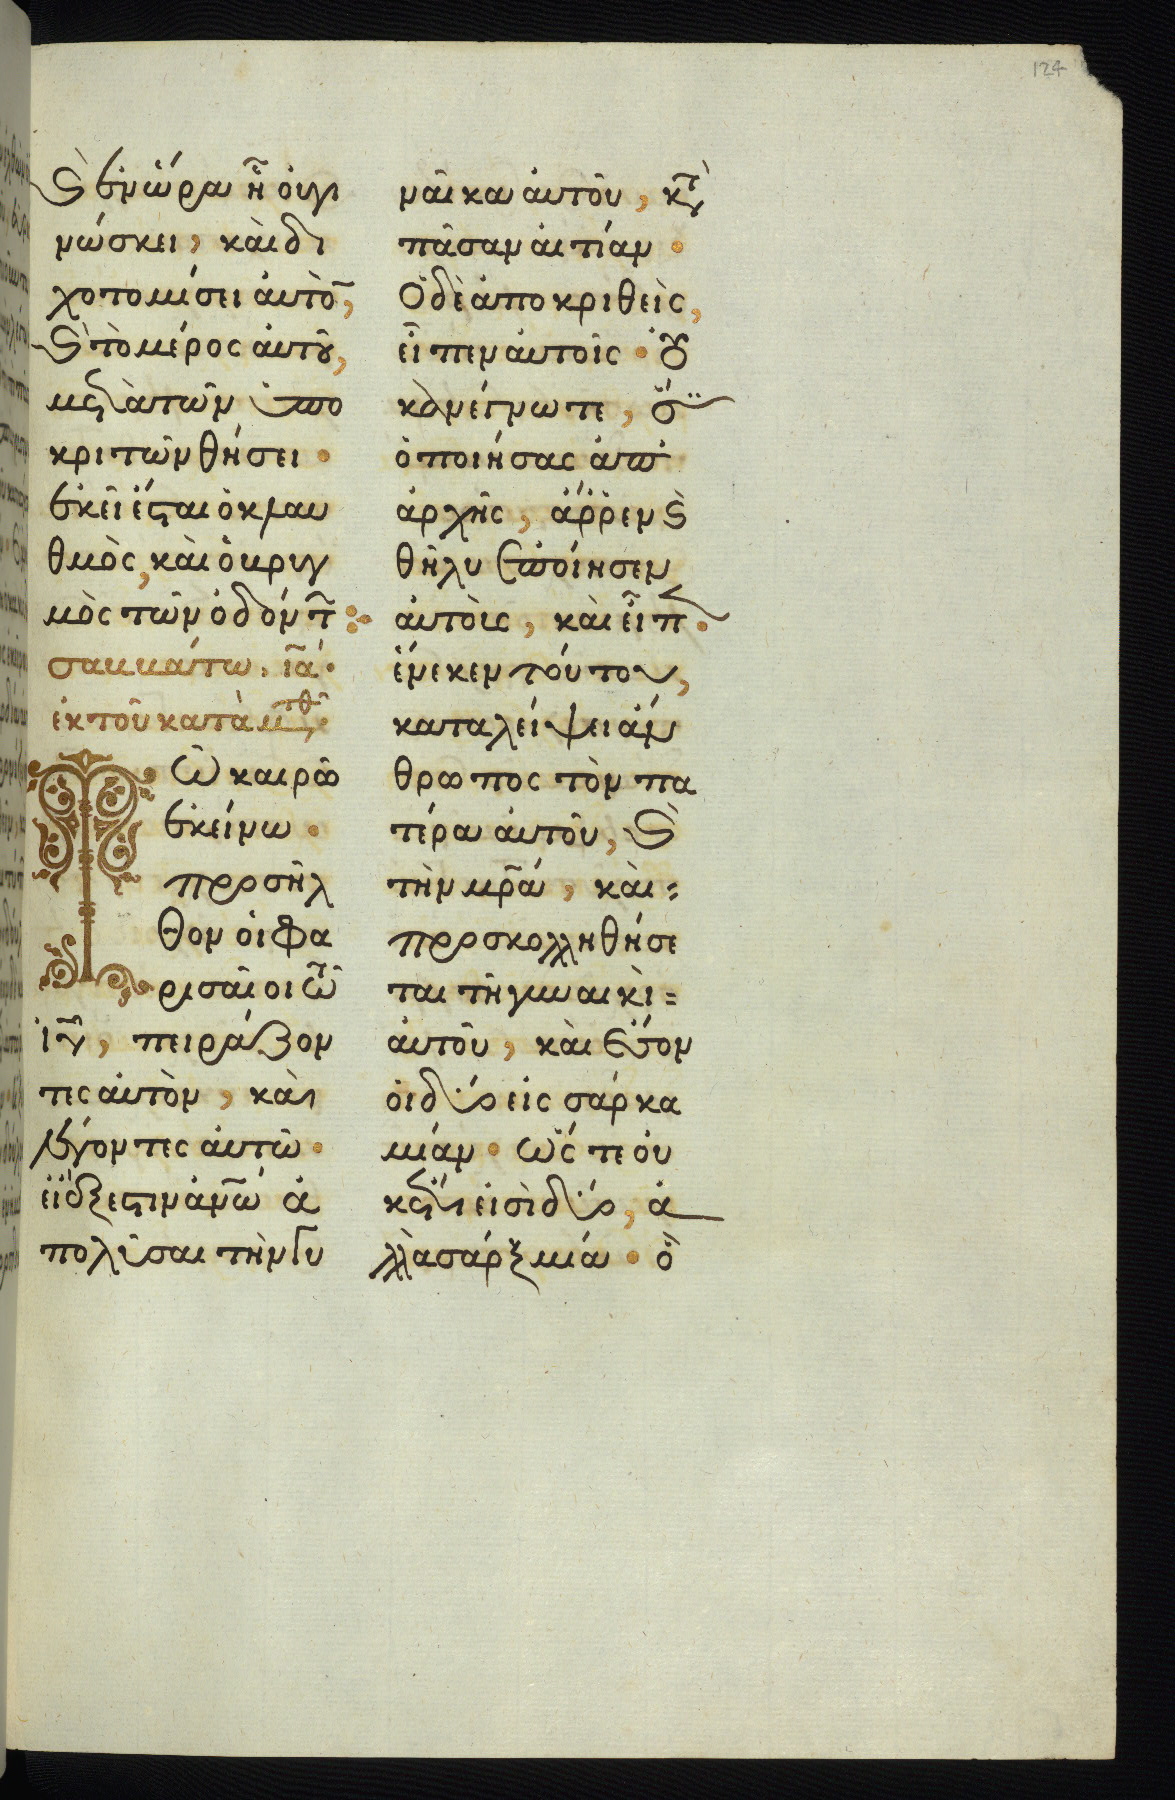 124
ϛ̀ ἐν ὥρα ἧ οὐ γι
νώσκει, καὶ δι
χοτομίσει ἀυτὸ,
ϛ̀ τὸ μέρος ἀυτȣ͂,
μετὰ τῶν ὑπο
κριτῶν θήσει.
ἐκεῖ ἔσται ὁ κλαυ
θμὸς, καὶ ὁ βριγ
μὸς τῶν ὀδόντ
σαββάτω. ια.
ἐκ τοῦ κατὰ μτθ
Τῶ καιρῶ
ἐκείνω.
προσῆλ
θον οἱ φα
ρισαῖοι τῶ
ἰυ, πειράζον
τες ἀυτὸν, καὶ
λέγοντες ἀυτῶ.
εἰ ἔξεστιν ἀνω ἀ
πολῦσαι τὴν γυ
ναῖκα ἀυτοῦ, κτ
πᾶσαν ἀιτίαν.
Ὁ δὲ ἀποκριθεὶς,
εἶπεν ἀυτοῖς. ȣ̓
κ ἀνέγνωτε, ὅτι
ὁ ποιήσας ἀπ
ἀρχῆς, ἄῤῥεν ϛ̀
θῆλυ ἐποίησεν
ἀυτοὶς, καὶ εἶπεν.
ἕνεκεν τούτου,
καταλείψει ἄν
θρωπος τὸν πα
τέρα ἀυτοῦ, ϛ̀
τὴν μρα, καὶ
προσκολληθήσε
ται τῆ γυναικὶ
ἀυτοῦ, καὶ ἔσον
οἱ δύο εἰς σάρκα
μίαν. ὥστε ὀυ
κέτι εἰσὶ δύο, ἀ
λλὰ σάρξ μία. ὃ